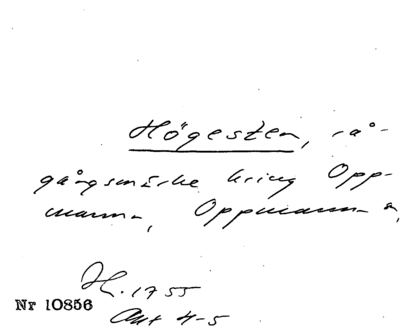 Högesten, rå-
gångsmärke kring Opp-
manna, Oppmanna s,
H. 1755
Akt 4-5
Nr 10856